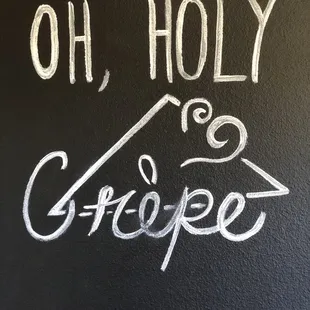 OH, HOLY
Crêpe